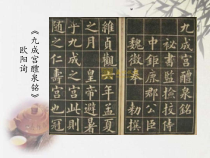 九成宮醴泉銘
秘書監檢校侍
中鉅鹿郡公臣
魏徵奉
維貞觀六年孟夏
之月 皇帝避暑
乎九成之宮此則
隨之仁壽宮也
《九成宫醴泉铭》
欧阳询